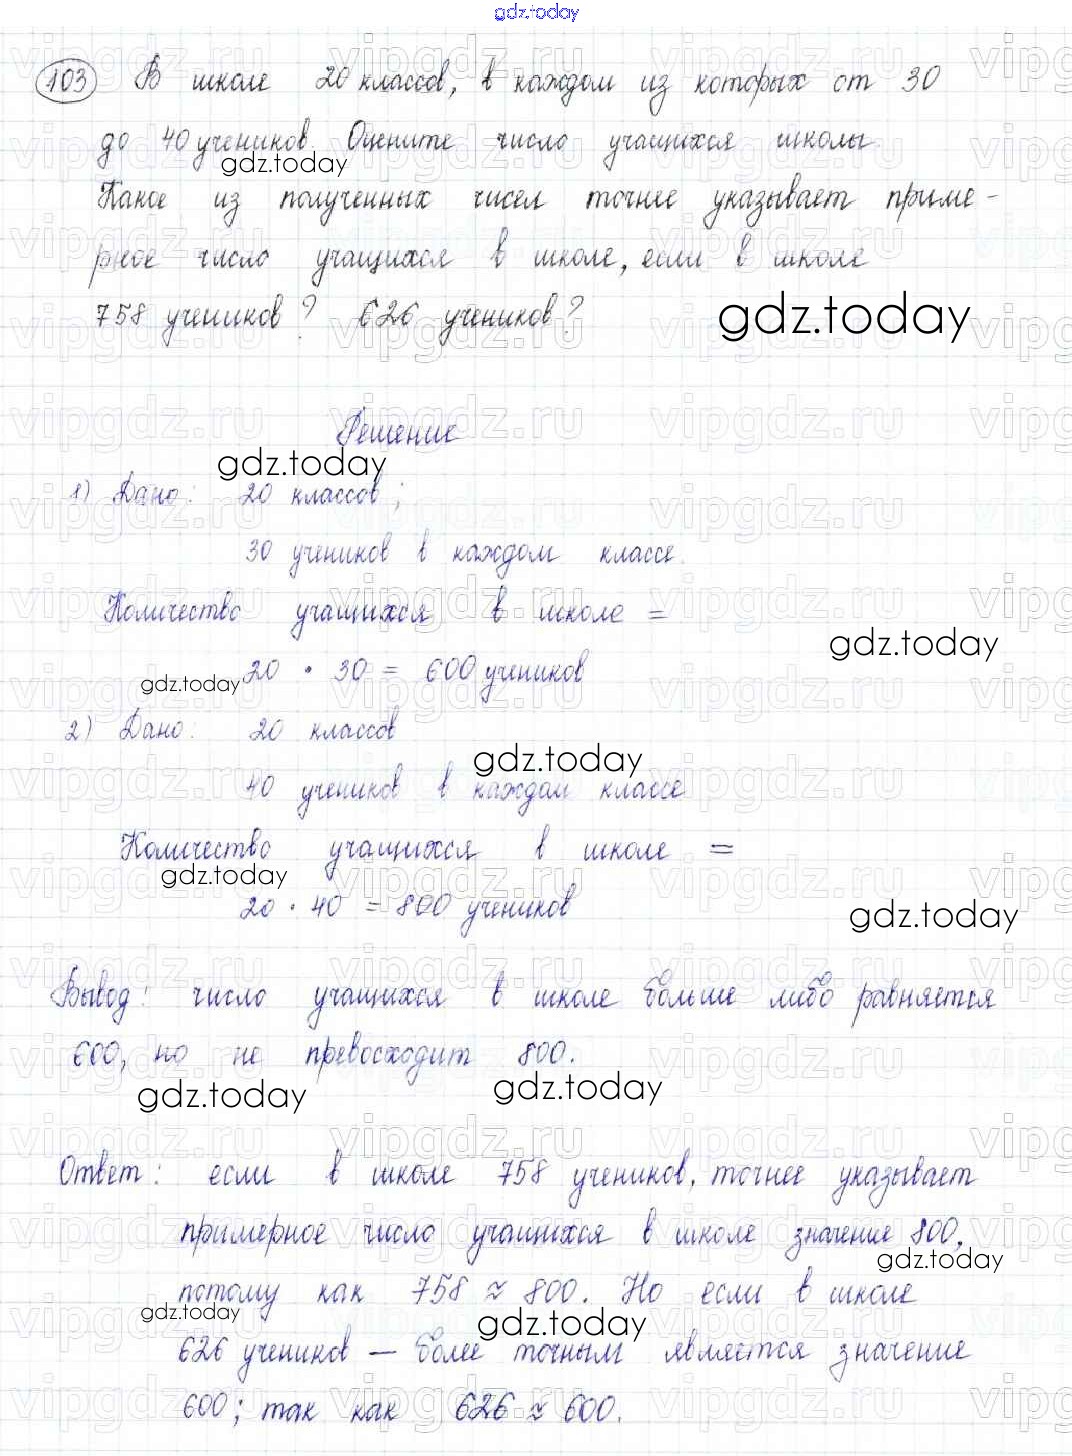 gdz.today
103 В школе 20 классов, в каждом из которых от 30
до 40 учеников. Оцените число учащихся школы.
gdz.today
Какое из полученных чисел точнее указывает приме-
рное число учащихся в школе, если в школе
758 учеников? 626 учеников?
gdz.today
Решение
gdz.today
1) Дано: 20 классов;
30 учеников в каждом классе.
Количество учащихся в школе =
gdz.today
20 · 30 = 600 учеников
gdz.today
2) Дано: 20 классов
gdz.today
40 учеников в каждом классе
Количество учащихся в школе =
gdz.today
20 · 40 = 800 учеников
gdz.today
Вывод: число учащихся в школе больше либо равняется
600, но не превосходит 800.
gdz.today
gdz.today
Ответ: если в школе 758 учеников, точнее указывает
примерное число учащихся в школе значение 800,
gdz.today
потому как 758 ≈ 800. Но если в школе
gdz.today
gdz.today
626 учеников — более точным является значение
600; так как 626 ≈ 600.